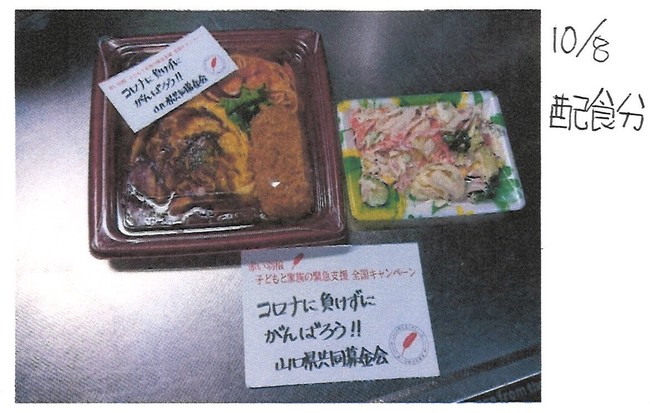 10/8
配食分
コロナに負けずに
がんばろう!!
山口県共同募金会
赤い羽根
子どもと家族の緊急支援 全国キャンペーン
コロナに負けずに
がんばろう!!
山口県共同募金会